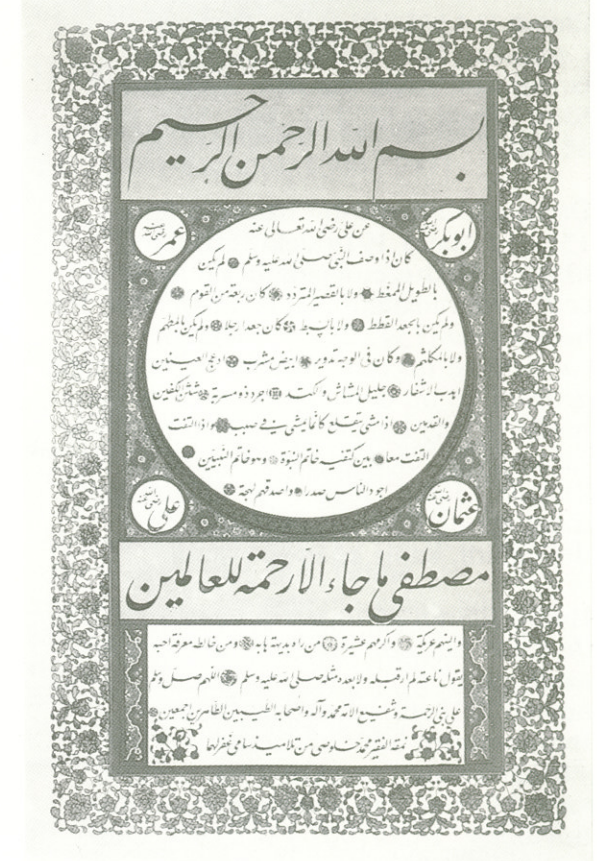 بسم الله الرحمن الرحيم
ابوبكر رضي الله عنه
عمر رضي الله عنه
عن علي رضي الله تعالى عنه
كان اذا وصف النبي صلى الله عليه وسلم لم يكن
بالطويل الممغط ولا بالقصير المتردد كان ربعة من القوم
ولم يكن بالجعد القطط ولا بالسبط كان جعدا رجلا ولم يكن بالمطهم
ولا بالمكلثم وكان في الوجه تدوير ابيض مشرب ادعج العينين
اهدب الاشفار جليل المشاش والكتد اجرد ذو مسربة شثن الكفين
والقدمين اذا مشى يتقلع كانما يمشي في صبب واذا التفت
التفت معا بين كتفيه خاتم النبوة وهو خاتم النبيين
اجود الناس صدرا واصدقهم لهجة
عثمان رضي الله عنه
علي رضي الله عنه
مصطفى ما جاء الا رحمة للعالمين
والينهم عريكة واكرمهم عشيرة من راه بديهة هابه ومن خالطه معرفة احبه
يقول ناعته لم ار قبله ولا بعده مثله صلى الله عليه وسلم اللهم صل وسلم
على نبي الرحمة وشفيع الامة محمد وآله واصحابه الطيبين الطاهرين اجمعين
نمقه الفقير محمد خلوصي من تلاميذ سامي غفر لهما